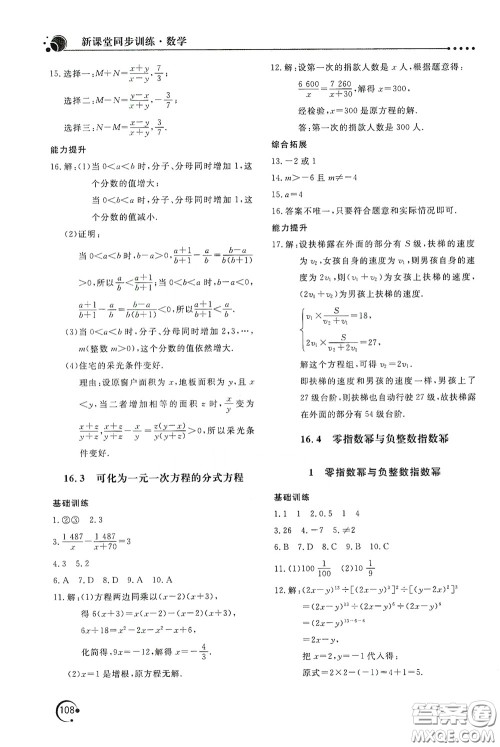 新课堂同步训练·数学
15.选择一：M+N=\frac{x+y}{x-y},\frac{7}{3}
选择二：M-N=\frac{y-x}{x+y},-\frac{3}{7}
选择三：N-M=\frac{x-y}{x+y},\frac{3}{7}.
能力提升
16.解：(1)当0<a<b时,分子、分母同时增加1,这
个分数的值增大；
当0<b<a时,分子、分母同时增加1,这个
分数的值减小.
(2)证明：
当0<a<b时,b-a>0,\frac{a+1}{b+1}-\frac{a}{b}=\frac{b-a}{b(b+1)}
>0,所以\frac{a}{b}<\frac{a+1}{b+1};当0<b<a时,b-a<0,
\frac{a+1}{b+1}-\frac{a}{b}=\frac{b-a}{b(b+1)}<0,所以\frac{a}{b}>\frac{a+1}{b+1}.
(3)当0<a<b时,分子、分母同时增加2,3,…,
m(整数m>0),这个分数的值依然增大.
(4)住宅的采光条件变好.
理由：设原窗户面积为x,地板面积为y,且x<
y,当二者增加相等的面积z时,\frac{x}{y}变为
\frac{x+z}{y+z},\frac{x+z}{y+z}-\frac{x}{y}=\frac{z(y-x)}{y(y+z)}>0,所以采光条
件变好.
16.3 可化为一元一次方程的分式方程
基础训练
1.②③ 2.3
3.\frac{1 487}{x}-\frac{1 487}{x+70}=3
4.3 5.2
6.A 7.D 8.D 9.D 10.A
11.解：(1)方程两边同乘以(x-2)(x+3),
得6(x+3)=x(x-2)-(x-2)(x+3),
6x+18=x²-2x-x²-x+6,
化简得,9x=-12,解得x=-\frac{4}{3}.
(2)x=1是增根,原方程无解.
12.解：设第一次的捐款人数是x人,根据题意得：
\frac{6 600}{x}=\frac{7 260}{x+30},解得x=300.
经检验,x=300是原方程的解.
答：第一次的捐款人数是300人.
综合拓展
13.-2或1
14.m>-6且m≠-4
15.a=4
16.答案不唯一,只要符合题意和实际情况即可.
能力提升
17.解：设扶梯露在外面的部分有S级,扶梯的速度
为v₂,女孩自身的速度为v₁,则男孩自身的速
度为2v₁,则(v₁+v₂)为女孩上扶梯的速度,
(2v₁+v₂)为男孩上扶梯的速度.
{v₁×\frac{S}{v₂+v₁}=18,
2v₁×\frac{S}{v₂+2v₁}=27,
解这个方程组,可得v₂=2v₁.
即扶梯的速度和男孩的速度一样,男孩上了
27级台阶,则扶梯也自动行驶27级,故扶梯露
在外面的部分有54级台阶.
16.4 零指数幂与负整数指数幂
1 零指数幂与负整数指数幂
基础训练
1.1 1 2.0.5 1 4
3.26 4.-7 5.≠2
6.B 7.D 8.C 9.B 10.C
11.(1)100\frac{1}{100} (2)10\frac{1}{9}
12.解：(2x-y)¹³÷[(2x-y)³]²÷[(y-2x)²]³
=(2x-y)¹³÷(2x-y)⁶÷(2x-y)⁶
=(2x-y)¹³⁻⁶⁻⁶
=2x-y.
把x=2,y=-1代人得：
原式=2×2-(-1)=4+1=5.
108